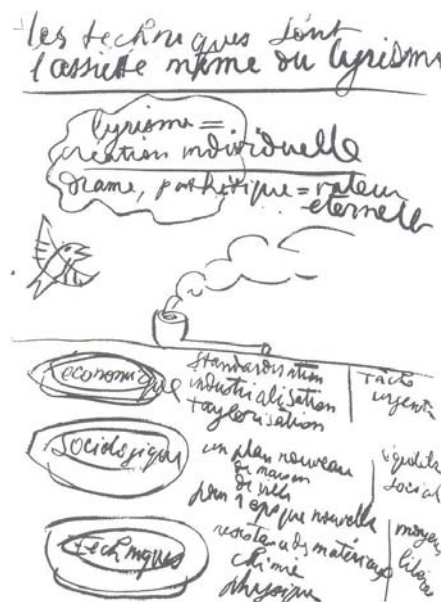 les techniques sont
l'assiette même du lyrisme
lyrisme =
création individuelle
drame, pathétique = valeur
éternelle
économique
standardisation
industrialisation
taylorisation
tâche
urgente
sociologique
un plan nouveau
de maison
de ville
pour 1 époque nouvelle
équilibre
social
techniques
résistance des matériaux
chimie
physique
moyens